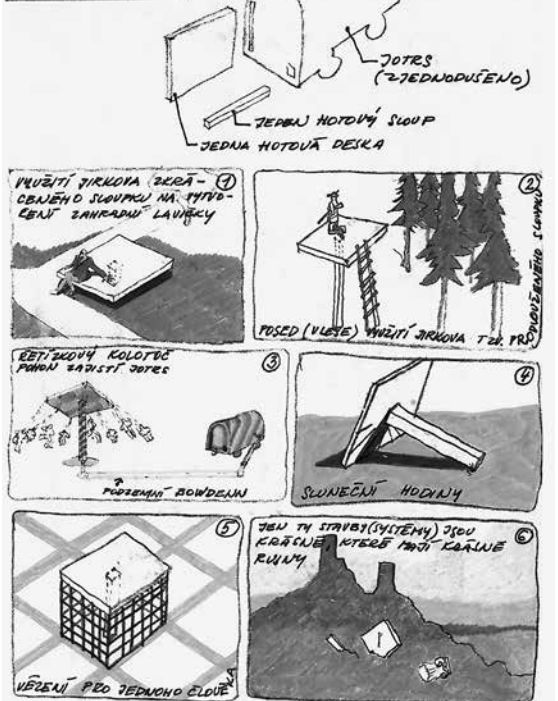 JOTRS
(ZJEDNODUŠENO)
JEDEN HOTOVÝ SLOUP
JEDNA HOTOVÁ DESKA
VYUŽITÍ JIRKOVA ZKRÁ- 1
CENÉHO SLOUPKU NA VYTVO-
ŘENÍ ZAHRADNÍ LAVIČKY
2
POSED (V LESE) VYUŽITÍ JIRKOVA TZV. PRODLOUŽENÉHO SLOUPKU
ŘETÍZKOVÝ KOLOTOČ 3
POHON ZAJISTÍ JOTRS
PODZEMNÍ BOWDENN
4
SLUNEČNÍ HODINY
5
VĚZENÍ PRO JEDNOHO ČLOVĚKA
JEN TY STAVBY (SYSTÉMY) JSOU 6
KRÁSNÉ, KTERÉ MAJÍ KRÁSNÉ
RUINY